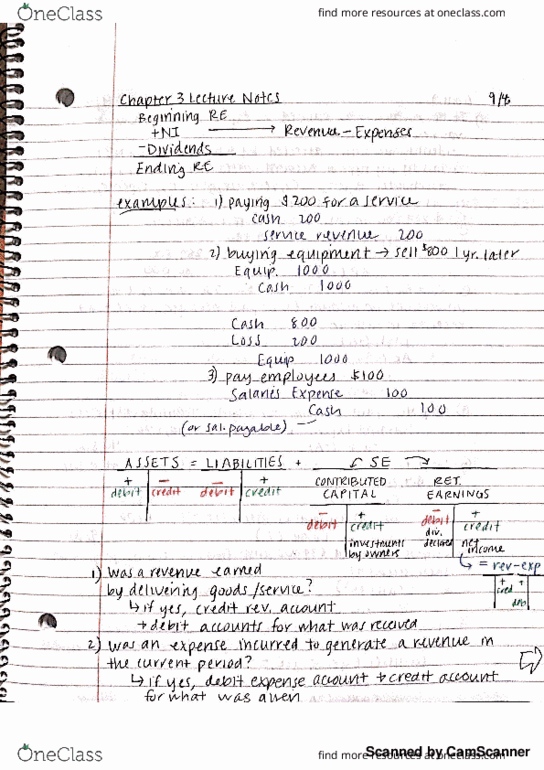 OneClass
find more resources at oneclass.com
Chapter 3 Lecture Notes 9/8
Beginning RE
+NI → Revenue - Expenses
-Dividends
Ending RE
examples: 1) paying $200 for a service
cash 200
service revenue 200
2) buying equipment → sell $800 1 yr. later
Equip. 1000
Cash 1000
Cash 800
Loss 200
Equip 1000
3) pay employees $100
Salaries Expense 100
Cash 100
(or sal. payable)
ASSETS = LIABILITIES + SE
+ - - +
debit credit debit credit
CONTRIBUTED CAPITAL
RET. EARNINGS
- + - +
debit credit debit credit
investments by owners
div. declared
net income
↳ = rev-exp
+ +
cred deb
1) was a revenue earned
by delivering goods/service?
↳ if yes, credit rev. account
+ debit accounts for what was received
2) was an expense incurred to generate a revenue in
the current period?
↳ if yes, debit expense account + credit account
for what was given
OneClass
find more resources at oneclass.com
Scanned by CamScanner